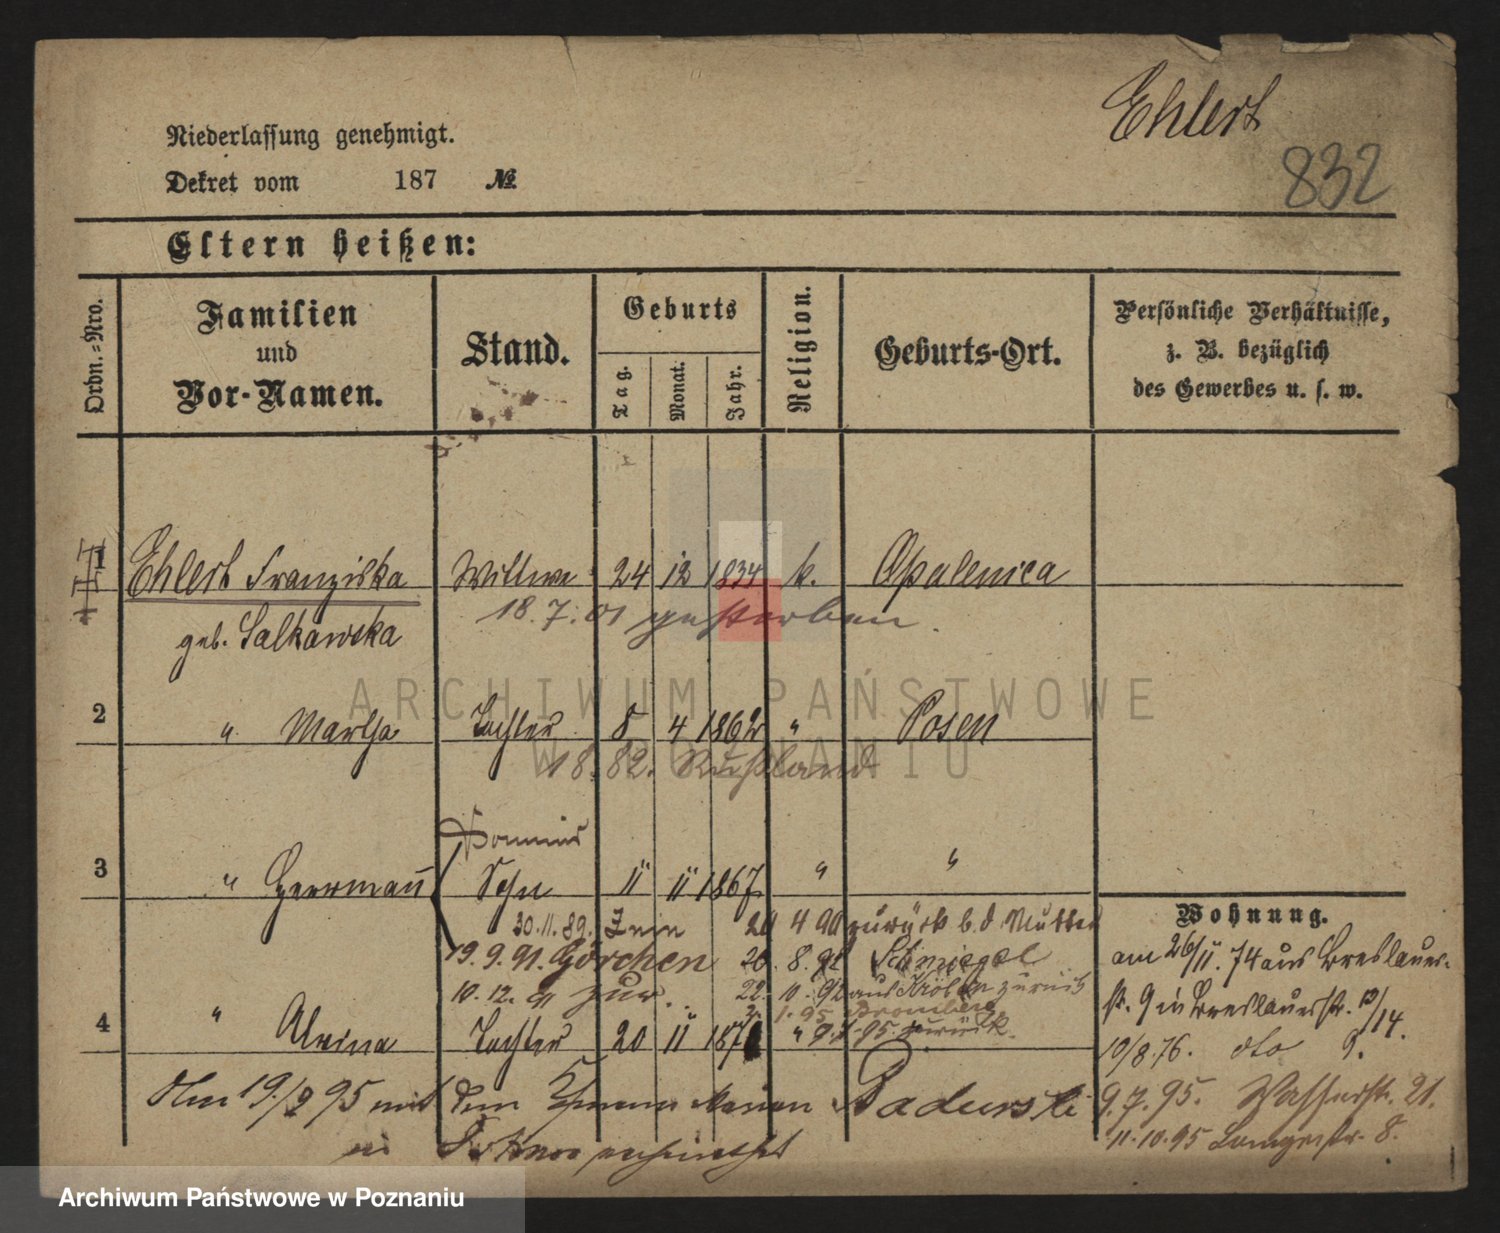 Ehlert
832
Niederlassung genehmigt.
Dekret vom 187 №
Eltern heißen:
Ordn.-Nro.
Familien
und
Vor-Namen.
Stand.
Geburts
Tag.
Monat.
Jahr.
Religion.
Geburts-Ort.
Persönliche Verhältnisse,
z. B. bezüglich
des Gewerbes u. s. w.
1 Ehlert Franziska Wittwe 24 12 1834 k. Opalenica
18.7.01 gestorben.
geb. Salkawska
2 " Martha Tochter 8 4 1862 " Posen
18.82. Rußland
3 " Herrmann Sohn 11 11 1867 " "
Wohnung.
30.11.89. Znin 20 4 90 zurück b. d Mutter
19.9.91. Görchen 20.8.92 Schmiegel
10.12.91 zur. 22.10.92 aus Kröben zurück
1.95 Bromberg
" 9 7.95 zurück.
4 " Alvina Tochter 20 11 187
am 26/11.74 aus Breslauer-
str. 9 in Breslauerstr. 13/14.
10/8.76. dto 9.
9.7.95. Wasserstr. 21.
11.10.95 Langestr. 8.
Am 19./2 95 mit dem Paderski
in verheirathet
ARCHIWUM PAŃSTWOWE
W POZNANIU
Archiwum Państwowe w Poznaniu